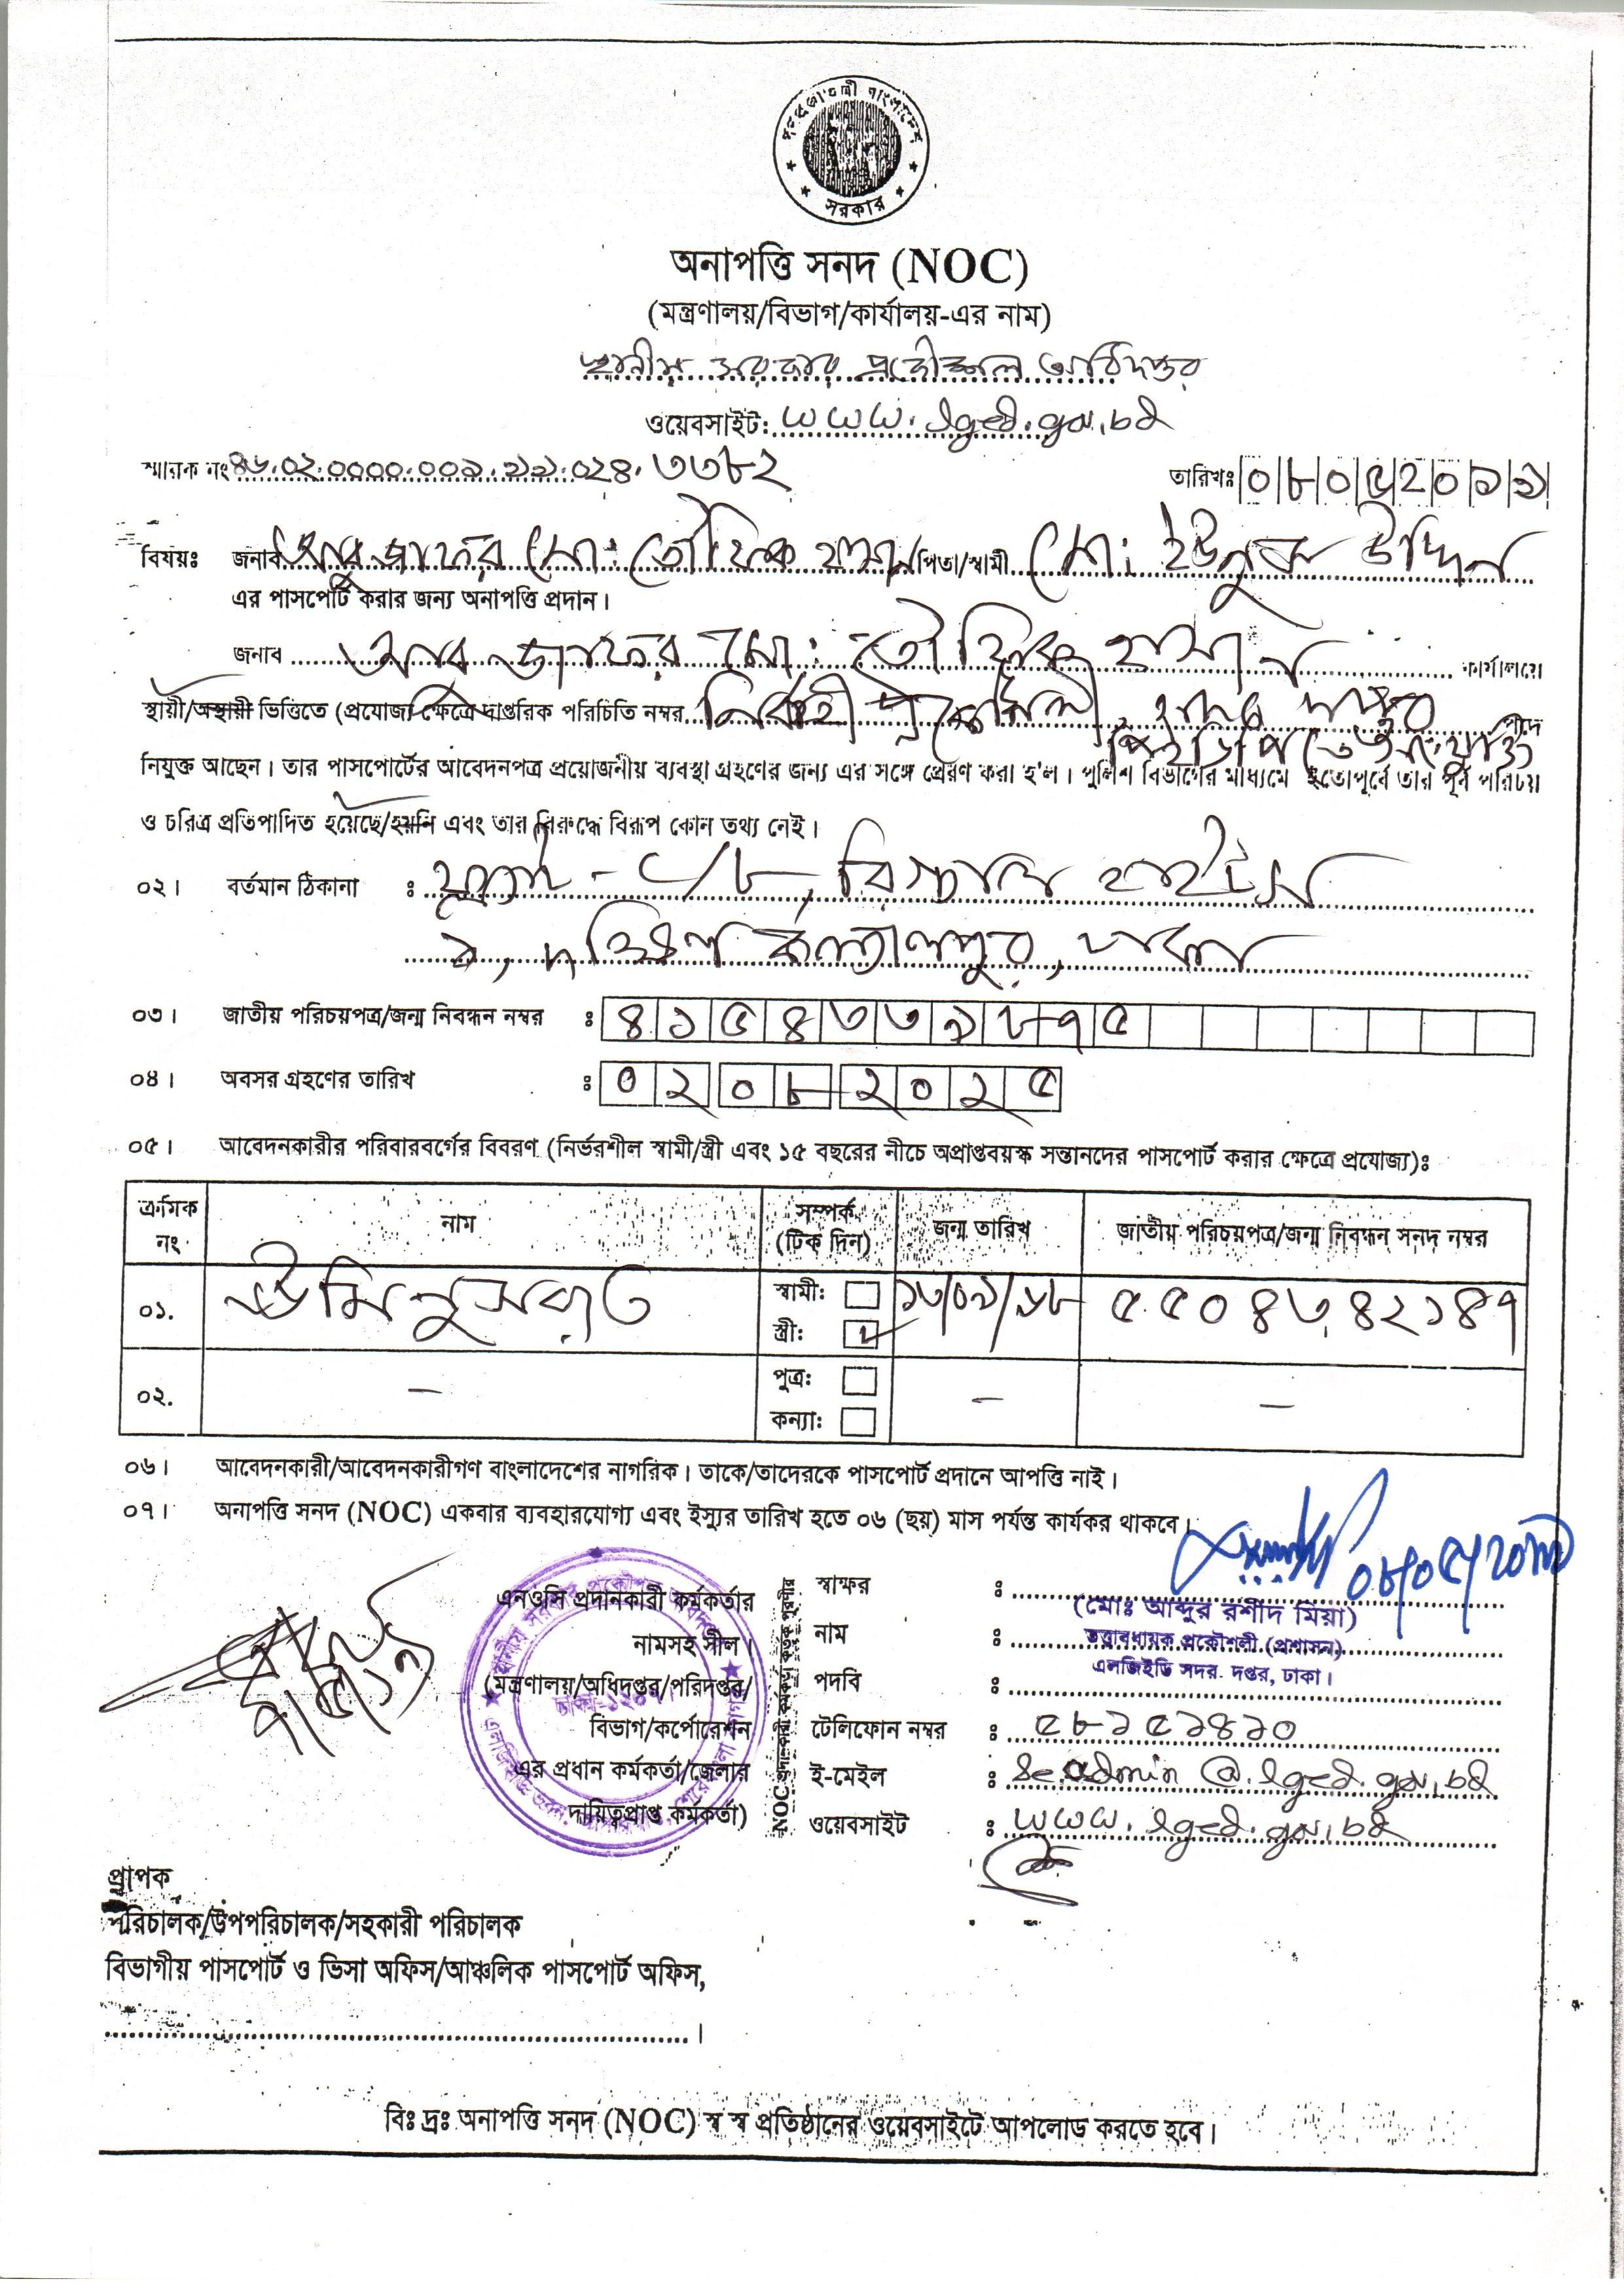 গণপ্রজাতন্ত্রী বাংলাদেশ
সরকার
অনাপত্তি সনদ (NOC)
(মন্ত্রণালয়/বিভাগ/কার্যালয়-এর নাম)
স্থানীয় সরকার প্রকৌশল অধিদপ্তর
ওয়েবসাইট: www.lged.gov.bd
স্মারক নং ৪৬.০২.০০০০.০০১.১১১.০২৪.৩৩৮২ তারিখঃ ০৮০৫২০১৯
বিষয়ঃ জনাব আবু জাফর মো: তৌফিক হাসান/পিতা/স্বামী মো: ইউনুস উদ্দিন
এর পাসপোর্ট করার জন্য অনাপত্তি প্রদান।
জনাব আবু জাফর মো: তৌফিক হাসান কার্যালয়ে
স্থায়ী/অস্থায়ী ভিত্তিতে (প্রযোজ্য ক্ষেত্রে দাপ্তরিক পরিচিতি নম্বর নির্বাহী প্রকৌশলী, সদর দপ্তর পদে
নিযুক্ত আছেন। তার পাসপোর্টের আবেদনপত্র প্রয়োজনীয় ব্যবস্থা গ্রহণের জন্য এর সঙ্গে প্রেরণ করা হ'ল। পুলিশ বিভাগের মাধ্যমে ইতোপূর্বে তার পূর্ব পরিচয়
ও চরিত্র প্রতিপাদিত হয়েছে/হয়নি এবং তার বিরুদ্ধে বিরূপ কোন তথ্য নেই।
০২। বর্তমান ঠিকানা : ফ্ল্যাট - সি/৮, হাইটস
১, দক্ষিণ কল্যাণপুর, ঢাকা
০৩। জাতীয় পরিচয়পত্র/জন্ম নিবন্ধন নম্বর ঃ ৪১৫৪৩৩৯৮৭৫
০৪। অবসর গ্রহণের তারিখ ঃ ০২০৮২০২৫
০৫। আবেদনকারীর পরিবারবর্গের বিবরণ (নির্ভরশীল স্বামী/স্ত্রী এবং ১৫ বছরের নীচে অপ্রাপ্তবয়স্ক সন্তানদের পাসপোর্ট করার ক্ষেত্রে প্রযোজ্য)ঃ
ক্রমিক নং নাম সম্পর্ক (টিক দিন) জন্ম তারিখ জাতীয় পরিচয়পত্র/জন্ম নিবন্ধন সনদ নম্বর
০১. উমি নুসরাত স্বামী: ৫৫০৪৩৪২১৪৭
স্ত্রী: ✓
০২. – পুত্র: – –
কন্যা:
০৬। আবেদনকারী/আবেদনকারীগণ বাংলাদেশের নাগরিক। তাকে/তাদেরকে পাসপোর্ট প্রদানে আপত্তি নাই।
০৭। অনাপত্তি সনদ (NOC) একবার ব্যবহারযোগ্য এবং ইস্যুর তারিখ হতে ০৬ (ছয়) মাস পর্যন্ত কার্যকর থাকবে।
০৮/০৫/২০১৯
এনওসি প্রদানকারী কর্মকর্তার
নামসহ সীল।
(মন্ত্রণালয়/অধিদপ্তর/পরিদপ্তর/
বিভাগ/কর্পোরেশন
এর প্রধান কর্মকর্তা/জেলার
দায়িত্বপ্রাপ্ত কর্মকর্তা)
NOC প্রদানকারী কর্মকর্তা কর্তৃক পূরণীয়
স্বাক্ষর ঃ
(মোঃ আব্দুর রশীদ মিয়া)
নাম ঃ তত্ত্বাবধায়ক প্রকৌশলী (প্রশাসন)
এলজিইডি সদর দপ্তর, ঢাকা।
পদবি ঃ
টেলিফোন নম্বর ঃ ৫৮১৫১৪১০
ই-মেইল ঃ se.admin@lged.gov.bd
ওয়েবসাইট ঃ www.lged.gov.bd
প্রাপক
পরিচালক/উপপরিচালক/সহকারী পরিচালক
বিভাগীয় পাসপোর্ট ও ভিসা অফিস/আঞ্চলিক পাসপোর্ট অফিস,
বিঃ দ্রঃ অনাপত্তি সনদ (NOC) স্ব স্ব প্রতিষ্ঠানের ওয়েবসাইটে আপলোড করতে হবে।